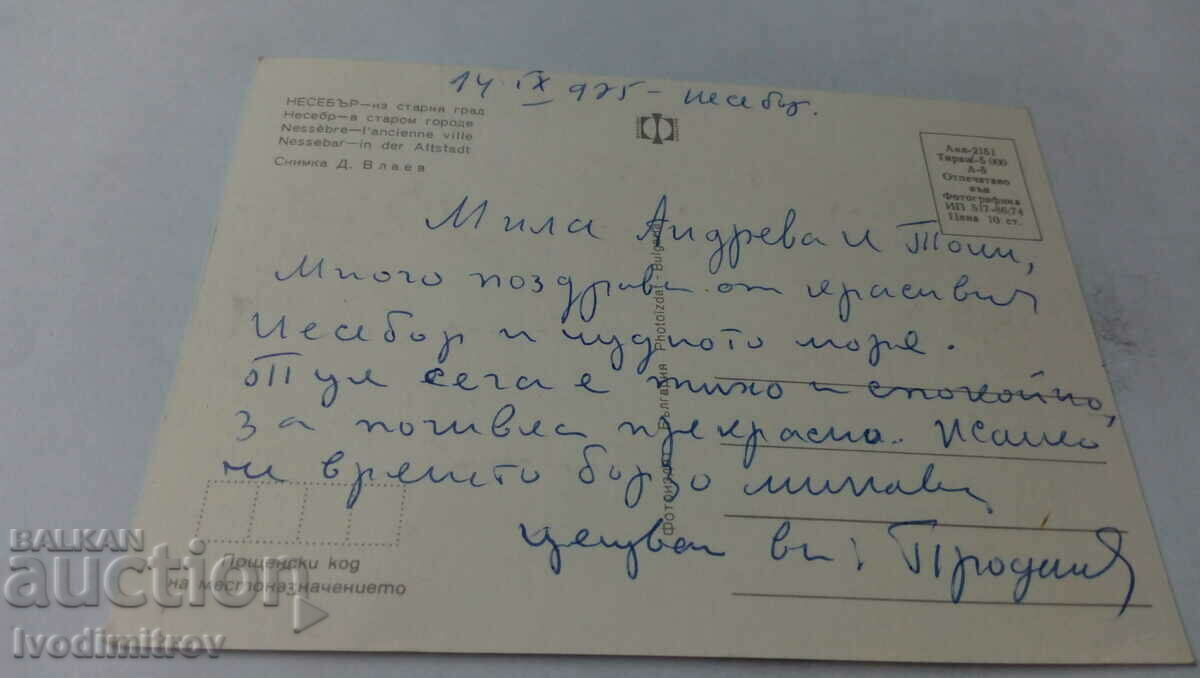 14 IX 975 - Несебр.
НЕСЕБЪР—из стария град
Несебр—в старом городе
Nessèbre—l'ancienne ville
Nessebar—in der Altstadt
Снимка Д. Влаев
Акл-2151
Тираж-5 000
А-6
Отпечатано
във
Фотографика
ИП 517-86/74
Цена 10 ст.
Мила Андреева и Тони,
Много поздрави от красивия
Несебър и чудното море.
Тук сега е тихо и спокойно,
за почивка прекрасно. Жалко
че времето бързо минава
целувам ви:
Фотоиздат България Photoizdat - Bulgaria
Пощенски код
на местоназначението
BALKAN
auction
Ivodimitrov